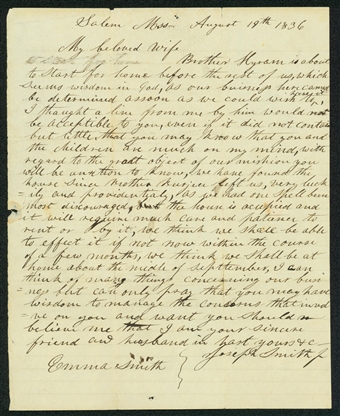 Salem Mass August 19th 1836
My beloved Wife
Brother Hyrum is about
to start for home before the rest of us, which
seems wisdom in God, as our business here can not
be determined as soon as we could wish to,
I thought a line from me by him would not
be acceptable to you, even if it did not contain
but little, that you may know that you and
the children are much on my mind, with
regard to the great object of our mishion you
will be anxtion to know, we have found the
house since Brother Burjece left us, very luck
ily and providentialy, as we had one spell been
most discouraged, but the house is occupied and
it will require much care and patience to
rent or by it, we think we shall be able
to effect it if not now within the course
of a few months, we think we shall be at
home about the midle of septtember, I can
think of many things concerning our busi
ness but can only pray that you may have
wisdom to manage the concerns that invol
ve on you and want you should
believe me that I am your sincere
friend and husband in hast yours &c—
Joseph Smith Jr
Emma Smith